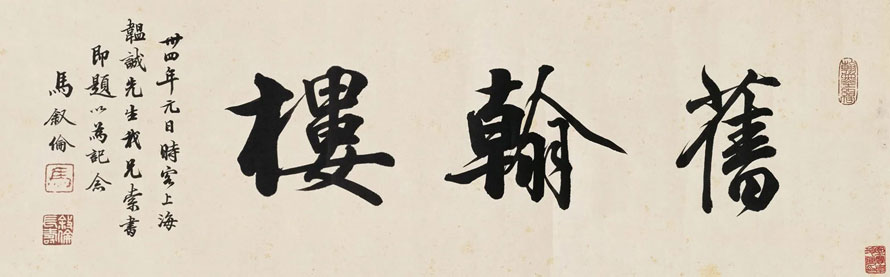 舊翰樓
卅四年元日時客上海
韞誠先生我兄索書
即題以為記念
馬叙倫
馬
叙倫長壽